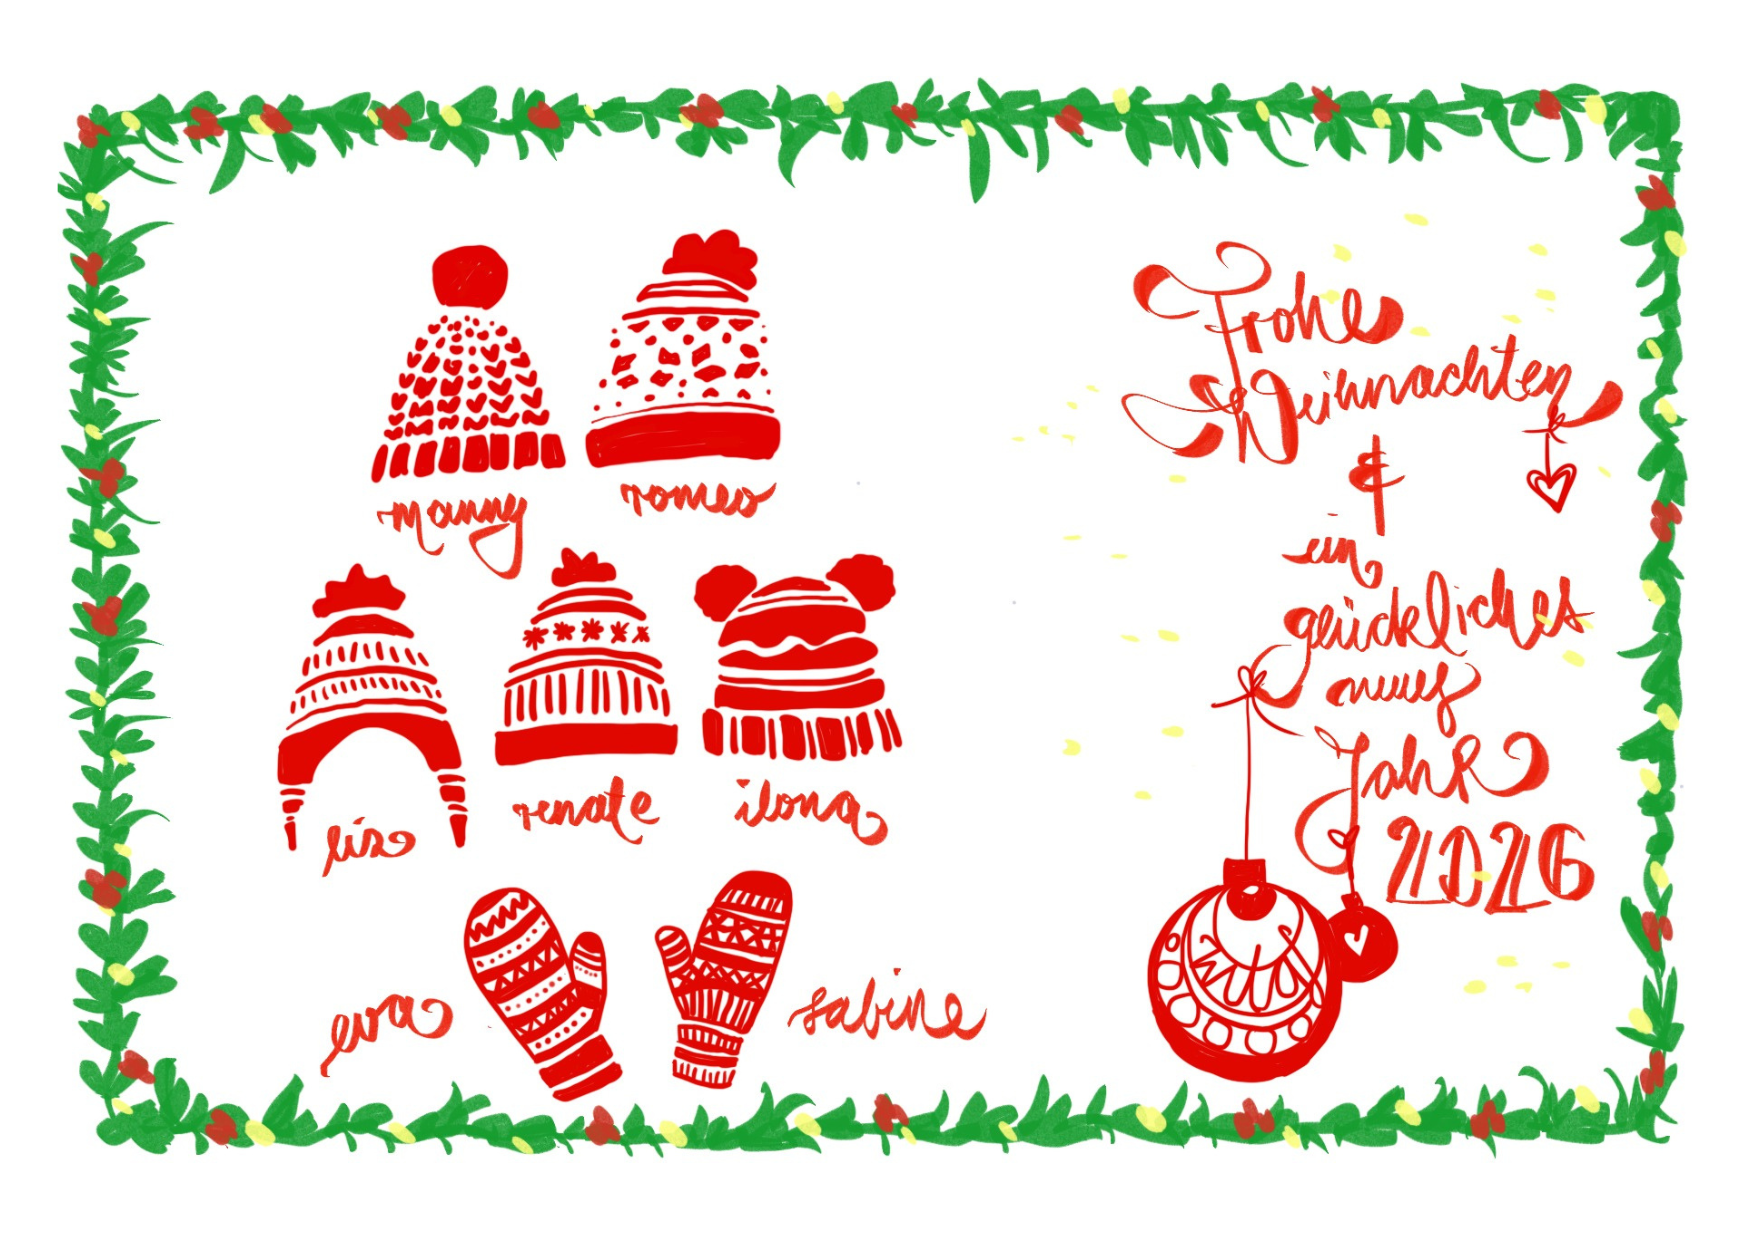 manny
romeo
liz
renate
ilona
eva
sabine
Frohe
Weihnachten
&
ein
glückliches
neues
Jahr
2026